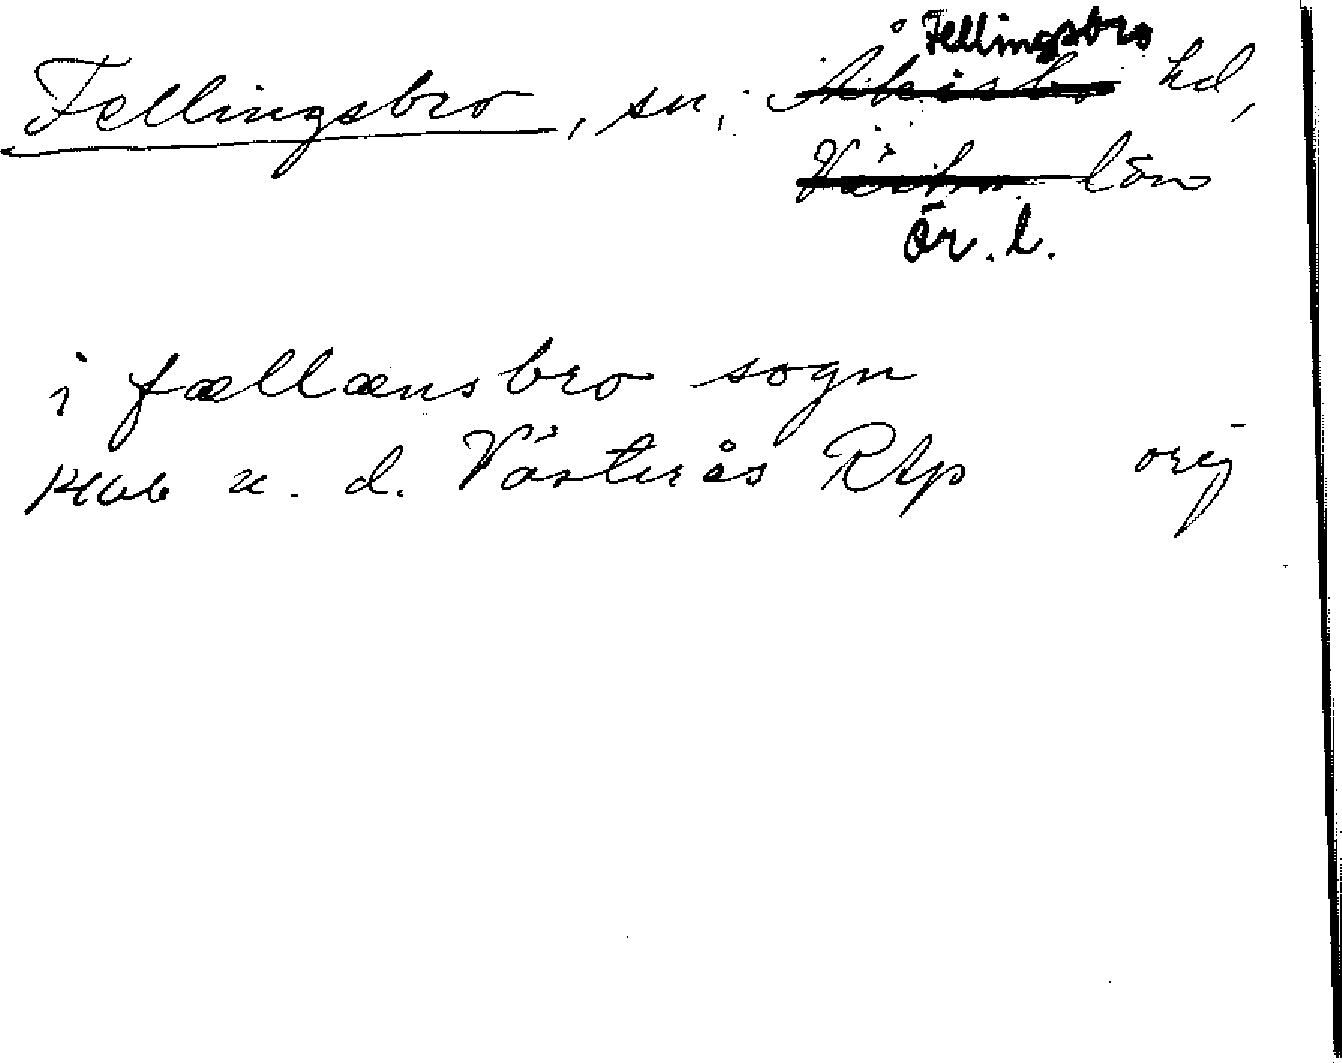 Fellingsbro
Fellingsbro, sn, Åkerbo hd,
Västm. län
Ör. l.
i fællænsbro sogn
1406 u. d. Västerås Rtp orig